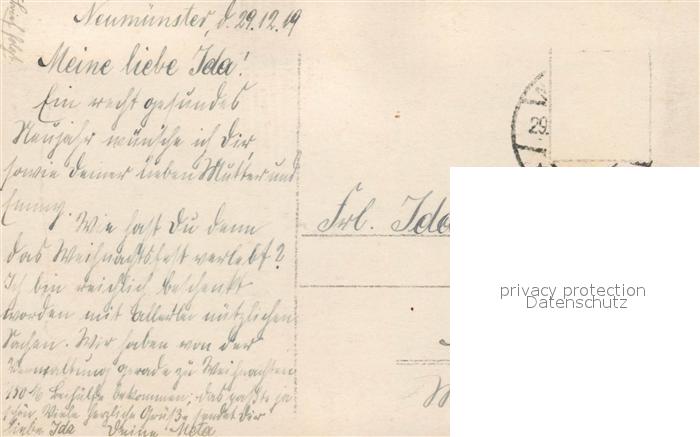 Neumünster, d. 29.12.19
Meine liebe Ida!
Ein recht gesundes
Neujahr wünsche ich Dir,
sowie Deiner lieben Mutter und
Emmy. Wie hast Du denn
das Weihnachtsfest verlebt?
Ich bin reichlich beschenkt
worden mit allerlei nützlichen
Sachen. Wir haben von der
Verwaltung gerade zu Weihnachten
150 M Beihülfe bekommen, das paßte ja
schön. Viele herzliche Grüße sendet Dir
liebe Ida Deine Meta
29.
Frl. Ida
privacy protection
Datenschutz